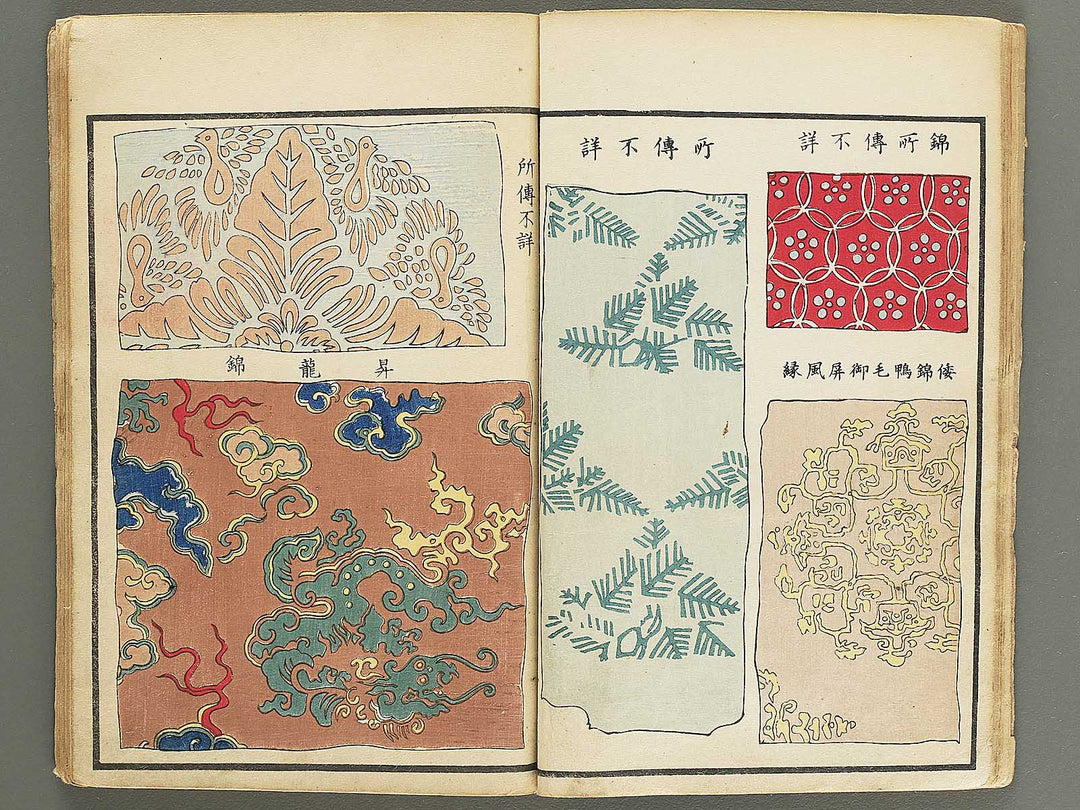 錦所傳不詳
倭錦鴨毛御屏風縁
所傳不詳
所傳不詳
昇龍錦